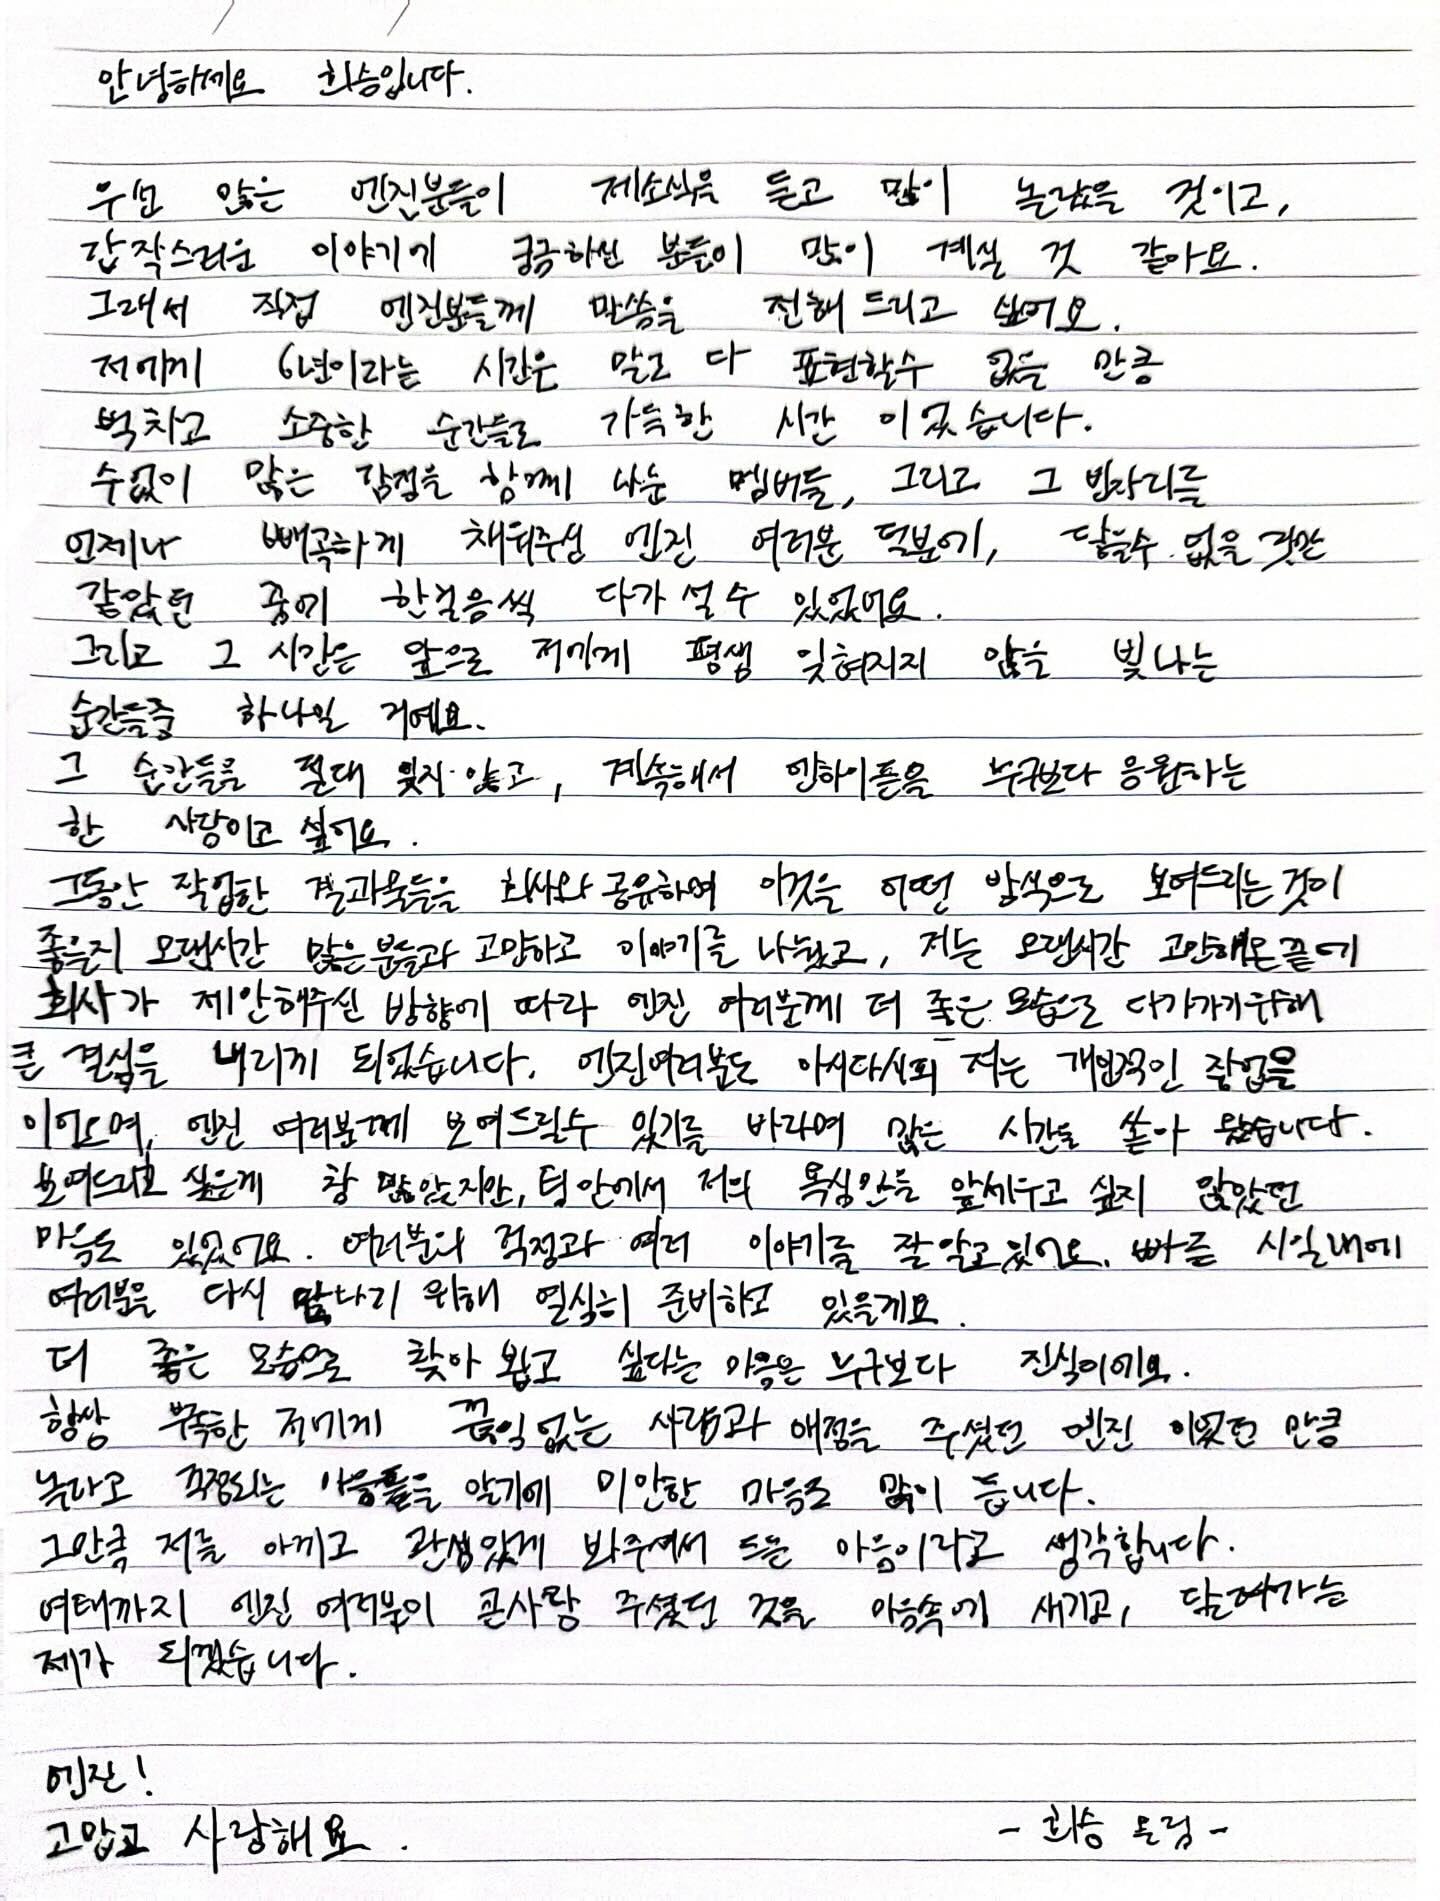 안녕하세요 희승입니다.
우선 많은 엔진분들이 제소식을 듣고 많이 놀랐을 것이고,
갑작스러운 이야기에 궁금하신 분들이 많이 계실 것 같아요.
그래서 직접 엔진분들께 말씀을 전해 드리고 싶어요.
저에게 6년이라는 시간은 말로 다 표현할수 없을 만큼
벅차고 소중한 순간들로 가득한 시간 이었습니다.
수없이 많은 감정을 함께 나눈 멤버들, 그리고 그 빈자리를
언제나 빼곡하게 채워주신 엔진 여러분 덕분에, 닿을수 없을 것만
같았던 꿈에 한걸음씩 다가 설 수 있었어요.
그리고 그 시간은 앞으로 저에게 평생 잊혀지지 않을 빛나는
순간들중 하나일 거예요.
그 순간들을 절대 잊지 않고, 계속해서 엔하이픈을 누구보다 응원하는
한 사람이고 싶어요.
그동안 작업한 결과물들을 회사와 공유하며 이것을 어떤 방식으로 보여드리는 것이
좋을지 오랜시간 많은 분들과 고민하고 이야기를 나눴고, 저는 오랜시간 고민해온 끝에
회사가 제안해주신 방향에 따라 엔진 여러분께 더 좋은 모습으로 다가가기위해
큰 결심을 내리게 되었습니다. 엔진여러분도 아시다시피 저는 개인적인 작업을
이어오며, 엔진 여러분께 보여드릴수 있기를 바라며 많은 시간을 쏟아 왔습니다.
보여드리고 싶은게 참 많았지만, 팀 안에서 저의 욕심만을 앞세우고 싶지 않았던
마음도 있었어요. 여러분의 걱정과 여러 이야기를 잘 알고 있어요. 빠른 시일내에
여러분을 다시 만나기 위해 열심히 준비하고 있을게요.
더 좋은 모습으로 찾아 뵙고 싶다는 마음은 누구보다 진심이에요.
항상 부족한 저에게 끊임없는 사랑과 애정을 주셨던 엔진 이었던 만큼
놀라고 걱정되는 마음들을 알기에 미안한 마음도 많이 듭니다.
그만큼 저를 아끼고 관심있게 봐주셔서 드는 마음이라고 생각합니다.
여태까지 엔진 여러분이 큰사랑 주셨던 것을 마음속에 새기고, 달려가는
제가 되겠습니다.
엔진!
고맙고 사랑해요.
- 희승 올림 -